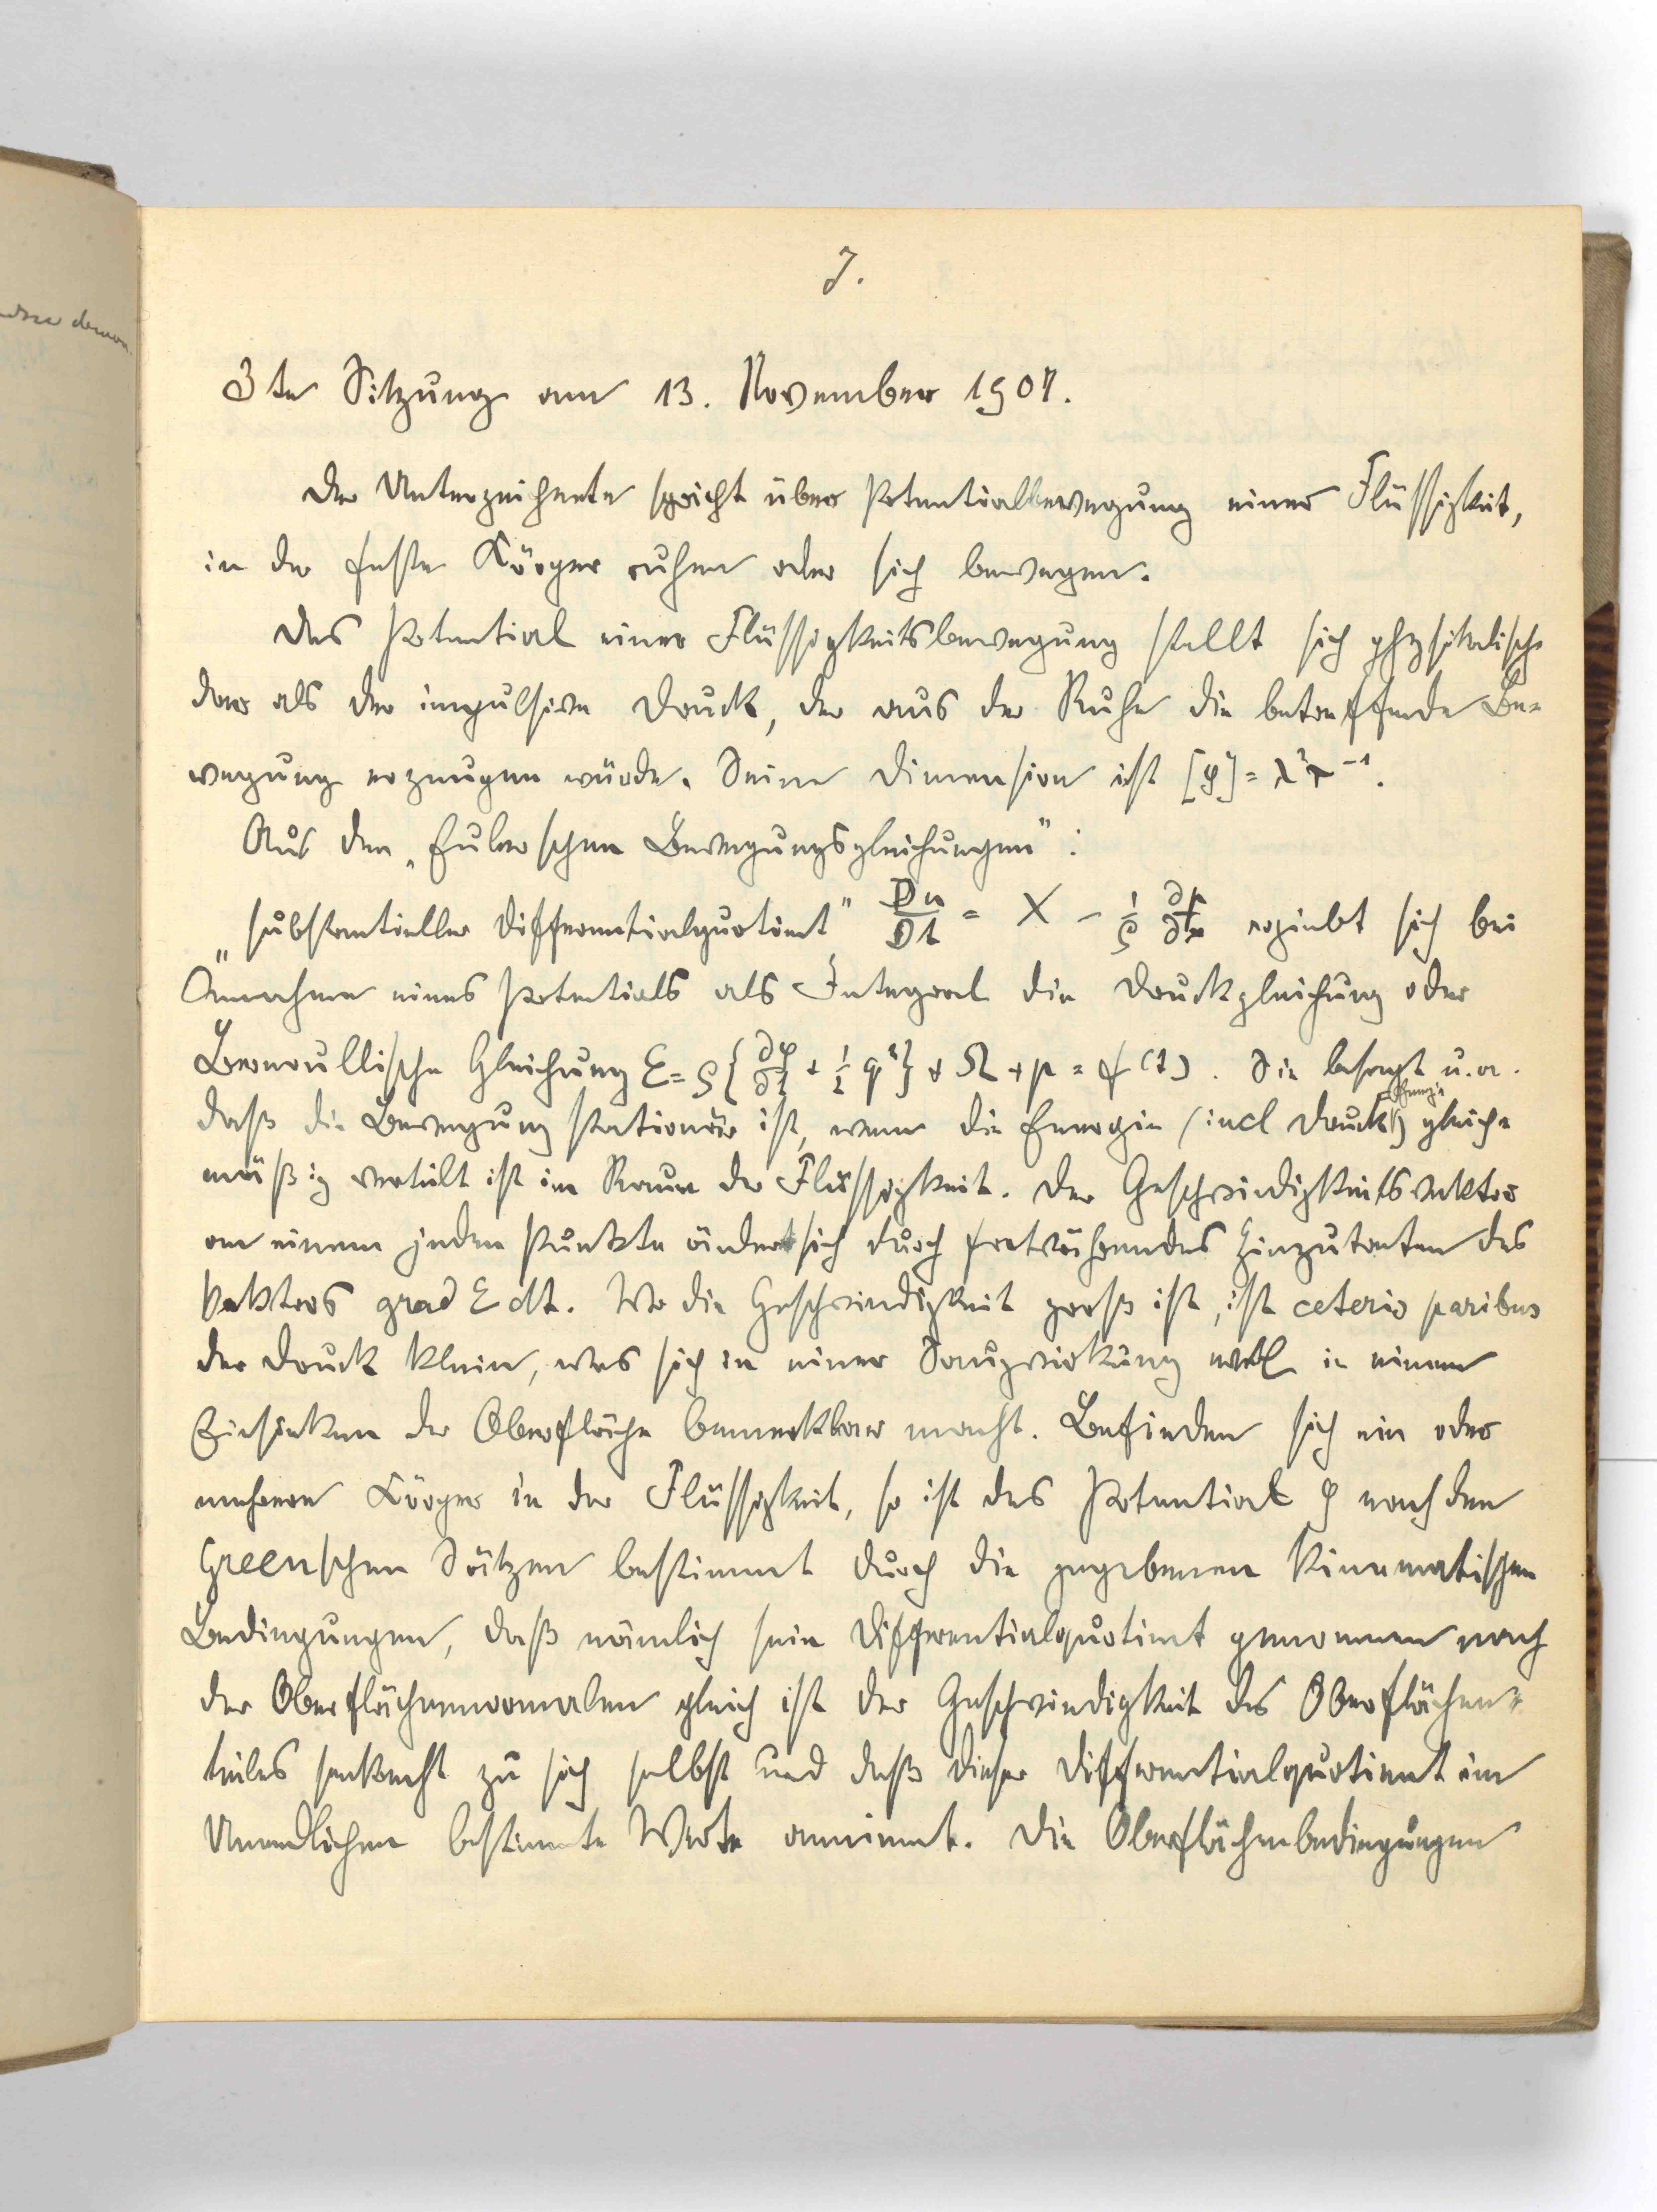 7.
3te Sitzung am 13. November 1907.
Der Unterzeichnete spricht über Potentialbewegung einer Flüssigkeit,
in der feste Körper ruhen oder sich bewegen.
Das Potential einer Flüssigkeitsbewegung stellt sich physikalisch
dar als der impulsive Druck, der aus der Ruhe die betreffende Be-
wegung erzeugen würde. Seine Dimension ist [φ] = λ²τ⁻¹.
Aus den „Eulerschen Bewegungsgleichungen“:
„substantieller Differentialquotient“ Du/Dt = X − 1/ρ ∂p/∂x ergiebt sich bei
Annahme eines Potentials als Integral die Druckgleichung oder
Bernoullische Gleichung E = ρ{∂φ/∂t + ½ q²} + Ω + p = f(t). Sie besagt u. a.
daß die Bewegung stationär ist, wenn die Energie (incl Druckenergie) gleich-
mäßig verteilt ist im Raum der Flüssigkeit. Der Geschwindigkeitsvektor
an einem jeden Punkte ändert sich durch fortwährendes Hinzutreten des
Vektors grad E dt. Wo die Geschwindigkeit groß ist, ist ceteris paribus
der Druck klein, was sich in einer Saugwirkung in einem
Einsinken der Oberfläche bemerkbar macht. Befinden sich ein oder
mehrere Körper in der Flüssigkeit, so ist das Potential φ nach den
Greenschen Sätzen bestimmt durch die gegebenen kinematischen
Bedingungen, daß nämlich sein Differentialquotient genommen nach
der Oberflächennormalen gleich ist der Geschwindigkeit des Oberflächen-
teiles senkrecht zu sich selbst und daß dieser Differentialquotient im
Unendlichen bestimmte Werte annimmt. Die Oberflächenbedingungen